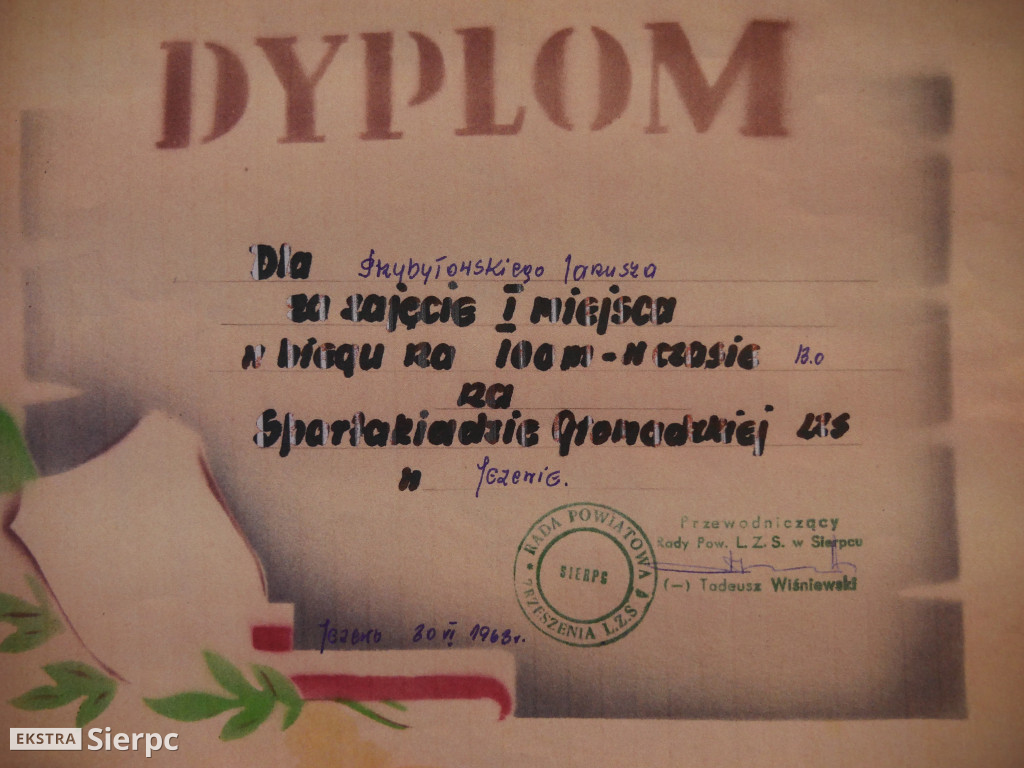 DYPLOM
Dla Przybyłowskiego Janusza
za zajęcie I miejsca
w biegu na 100m - w czasie 13.0
na
Spartakiadzie Gromadzkiej LZS
w Jeżewie.
RADA POWIATOWA
ZRZESZENIA L.Z.S.
SIERPC
Przewodniczący
Rady Pow. L.Z.S. w Sierpcu
(—) Tadeusz Wiśniewski
Jeżewo 30 VI 1968r.
EKSTRA Sierpc